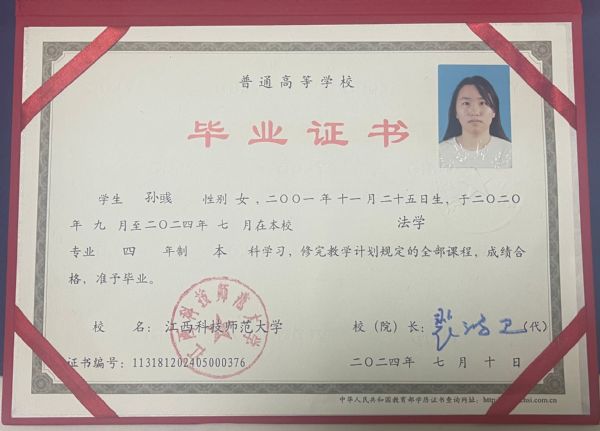 普通高等学校
毕业证书
学生 孙彧 性别 女，二〇〇一年 十一月 二十五日生，于二〇二〇
年 九 月至二〇二四年 七 月在本校 法学
专业 四 年制 本 科学习，修完教学计划规定的全部课程，成绩合
格，准予毕业。
江西科技师范大学
校 名：江西科技师范大学 校（院）长： （代）
证书编号：113181202405000376 二〇二四年 七 月 十 日
中华人民共和国教育部学历证书查询网址：http chsi.com.cn